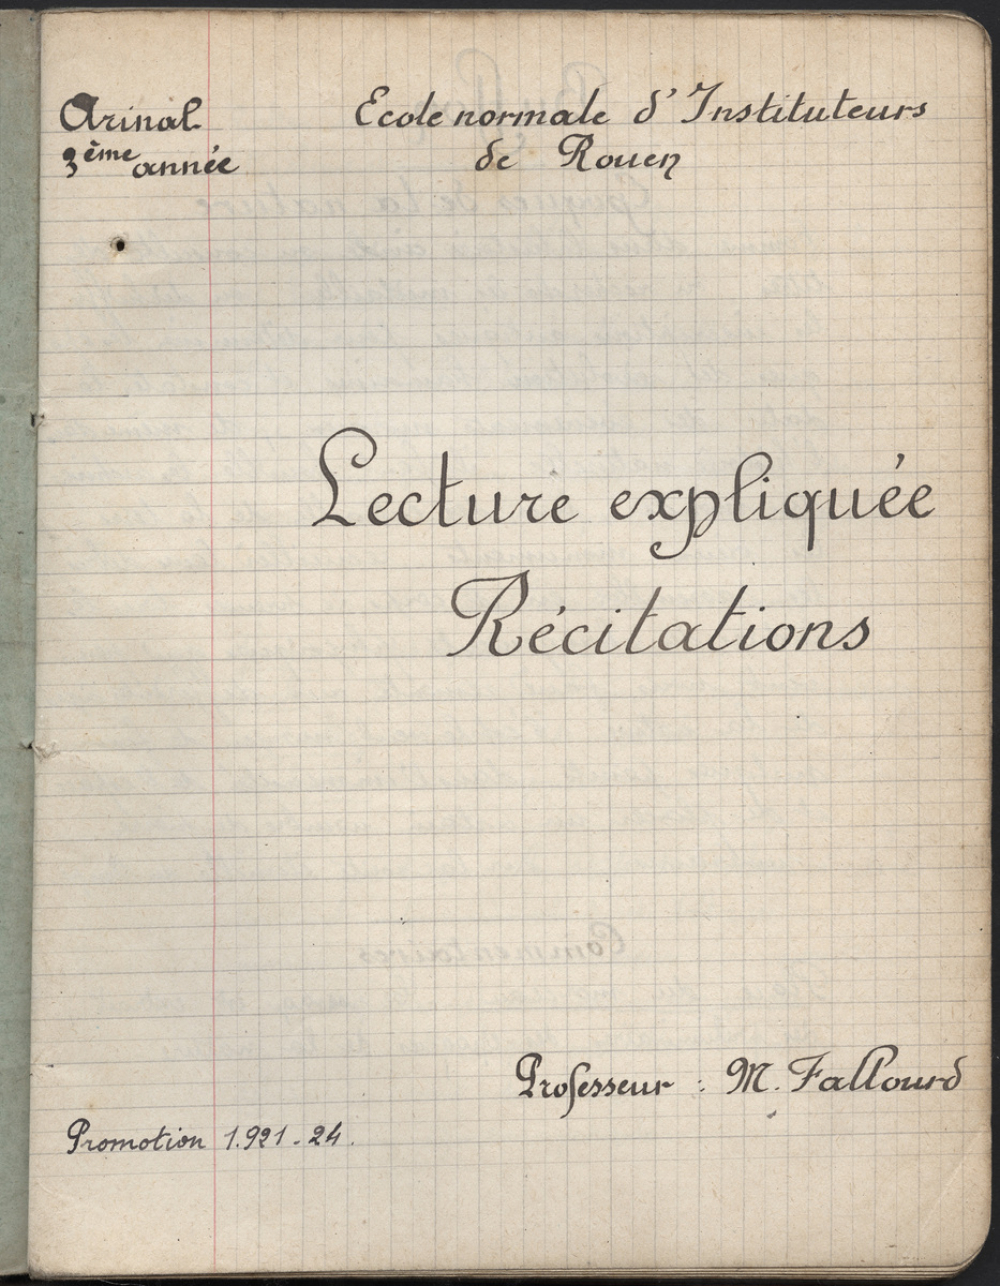 Arinal
3ème année
Ecole normale d'Instituteurs
de Rouen
Lecture expliquée
Récitations
Professeur : M. Fallourd
Promotion 1.921-24.